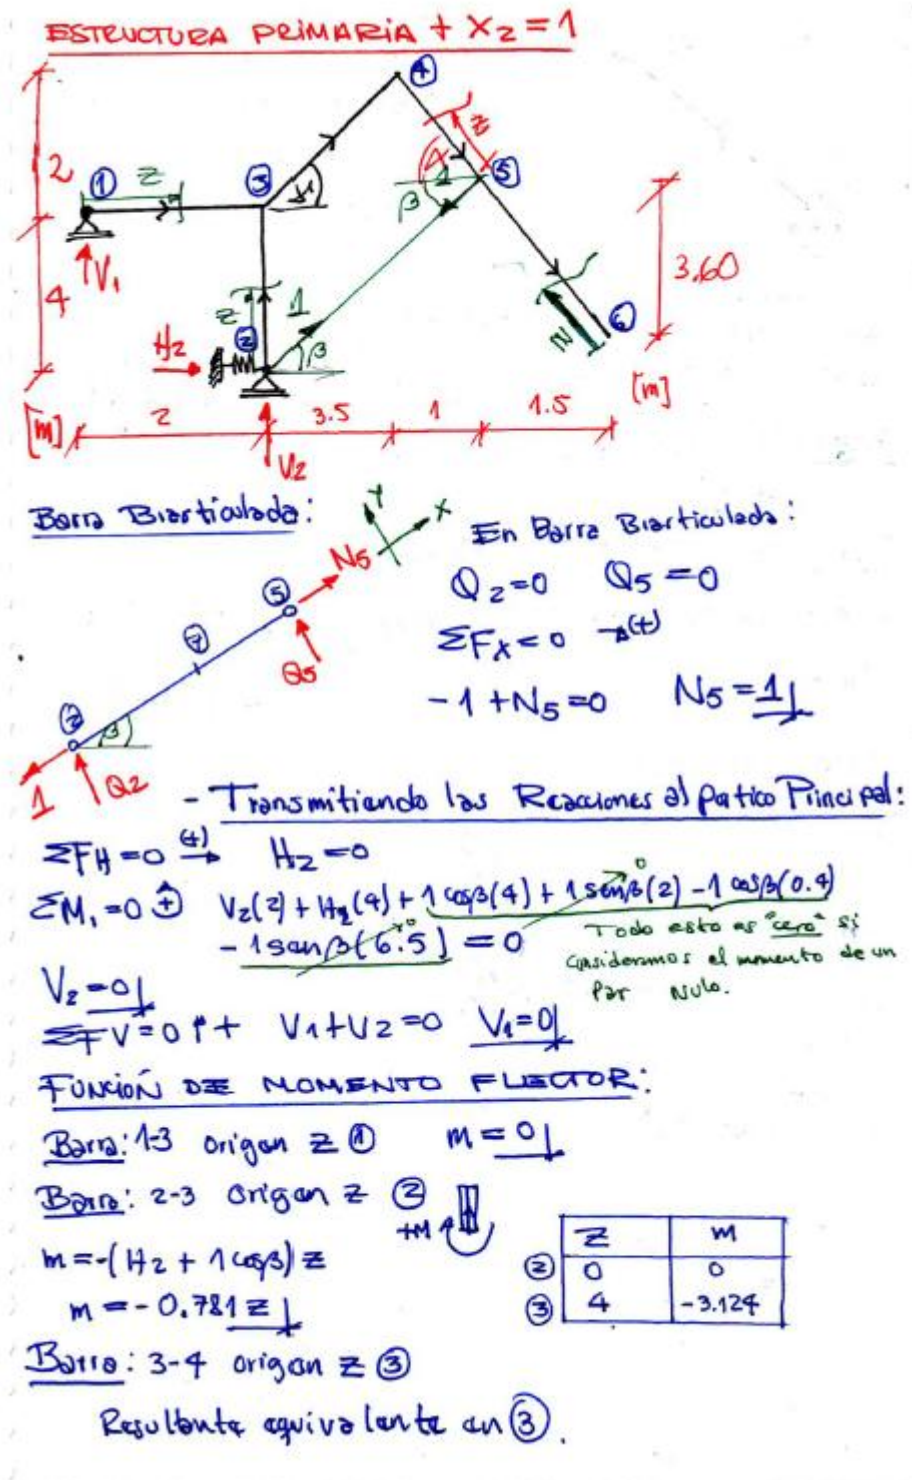 ESTRUCTURA PRIMARIA + X2 = 1
4
2
1
Z
3
γ
4
Z
1
5
β
V1
4
Z
2
1
β
H2
N
6
3.60
[m]
2
3.5
1
1.5
[m]
V2
Barra Biarticulada:
Y
X
N5
5
Q5
7
2
β
1
Q2
En Barra Biarticulada:
Q2=0 Q5=0
ΣFx=0 →(+)
-1+N5=0 N5=1
- Transmitiendo las Reacciones al portico Principal:
ΣFH=0 (+)→ H2=0
ΣM1=0 + V2(2)+H2(4)+1cosβ(4)+1senβ(2)-1cosβ(0.4)
-1senβ(6.5)=0
Todo esto es "cero" si
consideramos el momento de un
Par Nulo.
V2=0
ΣFV=0 ↑+ V1+V2=0 V1=0
FUNCIÓN DE MOMENTO FLECTOR:
Barra: 1-3 origen Z 1 m=0
Barra: 2-3 origen Z 2
+M
m=-(H2+1cosβ)z
m=-0.781z
Z m
2 0 0
3 4 -3.124
Barra: 3-4 origen Z 3
Resultante equivalente en 3.